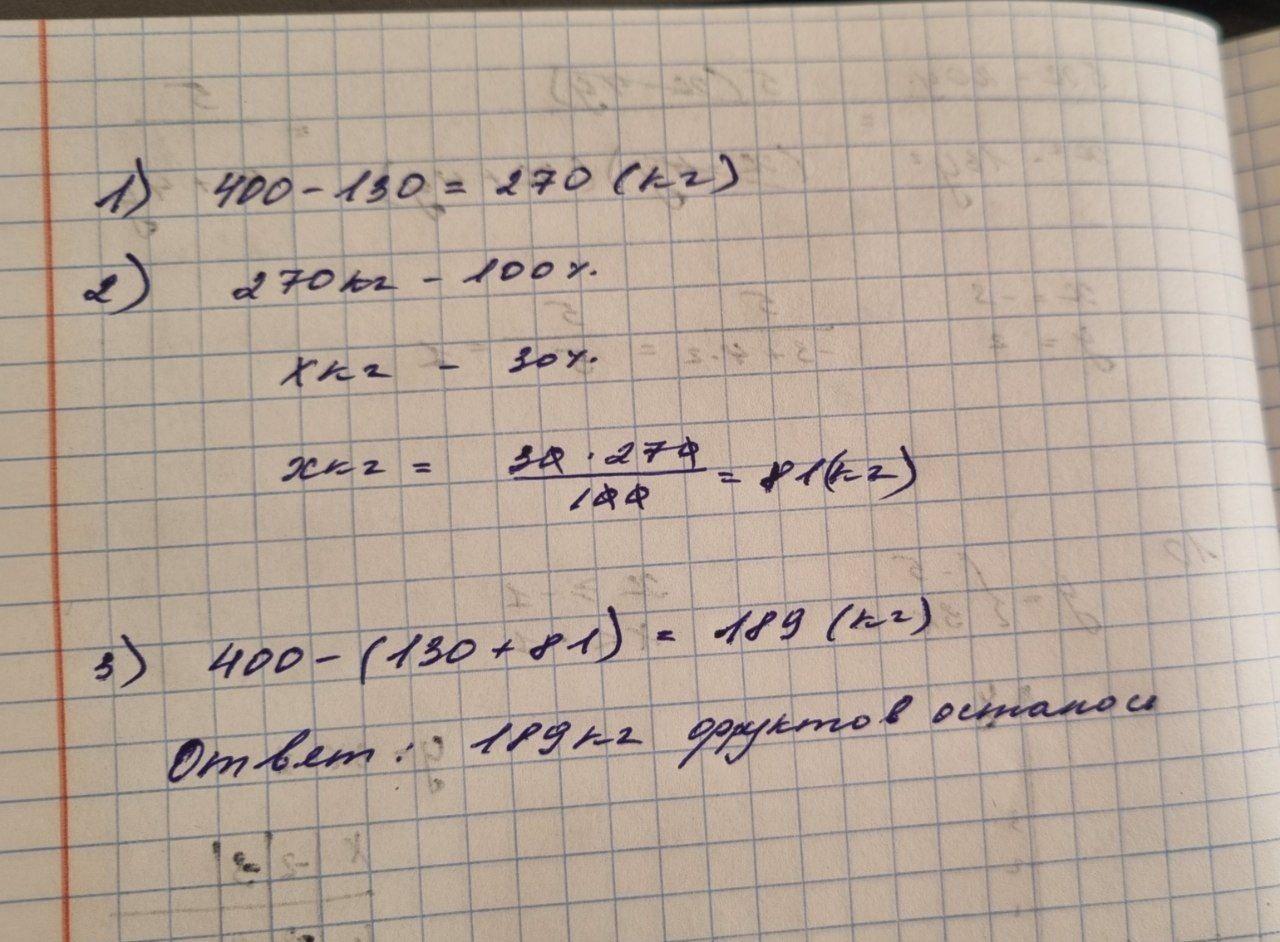 1) 400 - 130 = 270 (кг)
2) 270 кг - 100%.
x кг - 30%.
x кг = 30 · 270 / 100 = 81 (кг)
3) 400 - (130 + 81) = 189 (кг)
Ответ: 189 кг фруктов осталось